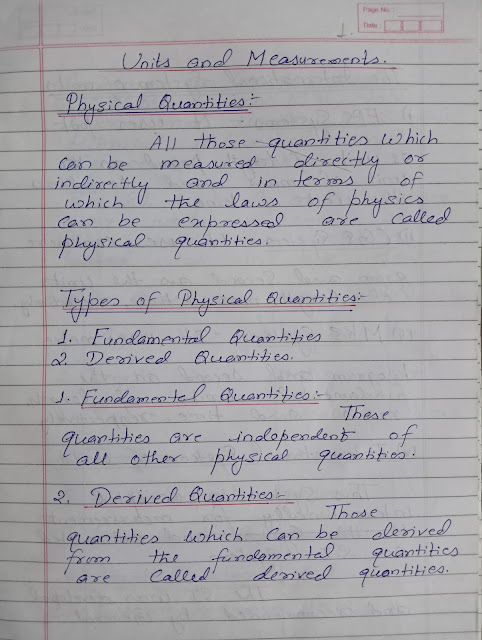 Page No.
Date :
1.
Units and Measurements.
Physical Quantities:-
All those quantities which
can be measured directly or
indirectly and in terms of
which the laws of physics
can be expressed are called
physical quantities.
Types of Physical Quantities:-
1. Fundamental Quantities
2. Derived Quantities.
1. Fundamental Quantities:-
These
quantities are independent of
all other physical quantities.
2. Derived Quantities:-
Those
quantities which can be derived
from the fundamental quantities
are called derived quantities.